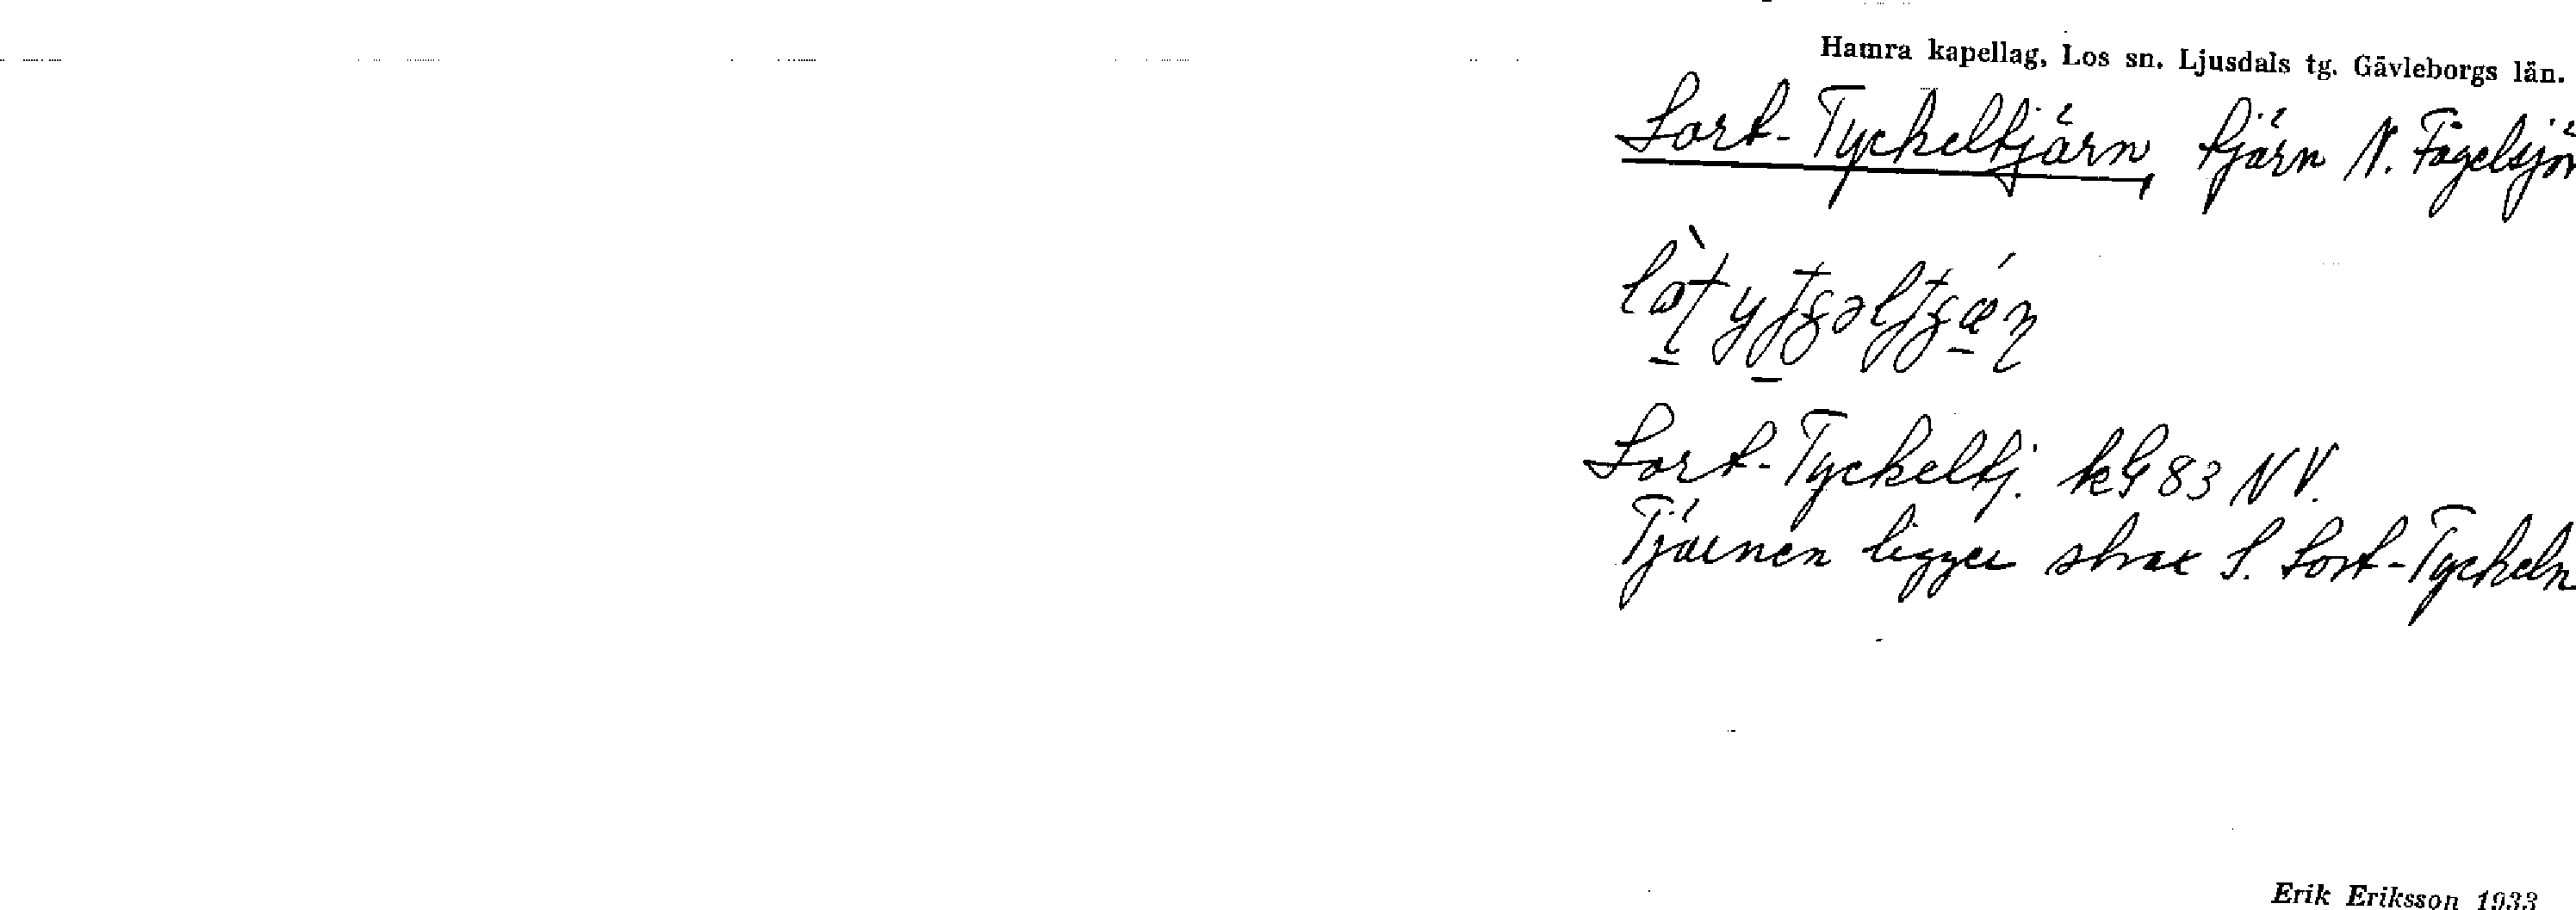 Hamra kapellag, Los sn. Ljusdals tg. Gävleborgs län.
Lort-Tyckeltjärn, tjärn N. Fågelsjön
Lort-Tyckeltj. kG 83 NV.
Tjärnen ligger strax S. Lort-Tyckeln
Erik Eriksson 1933